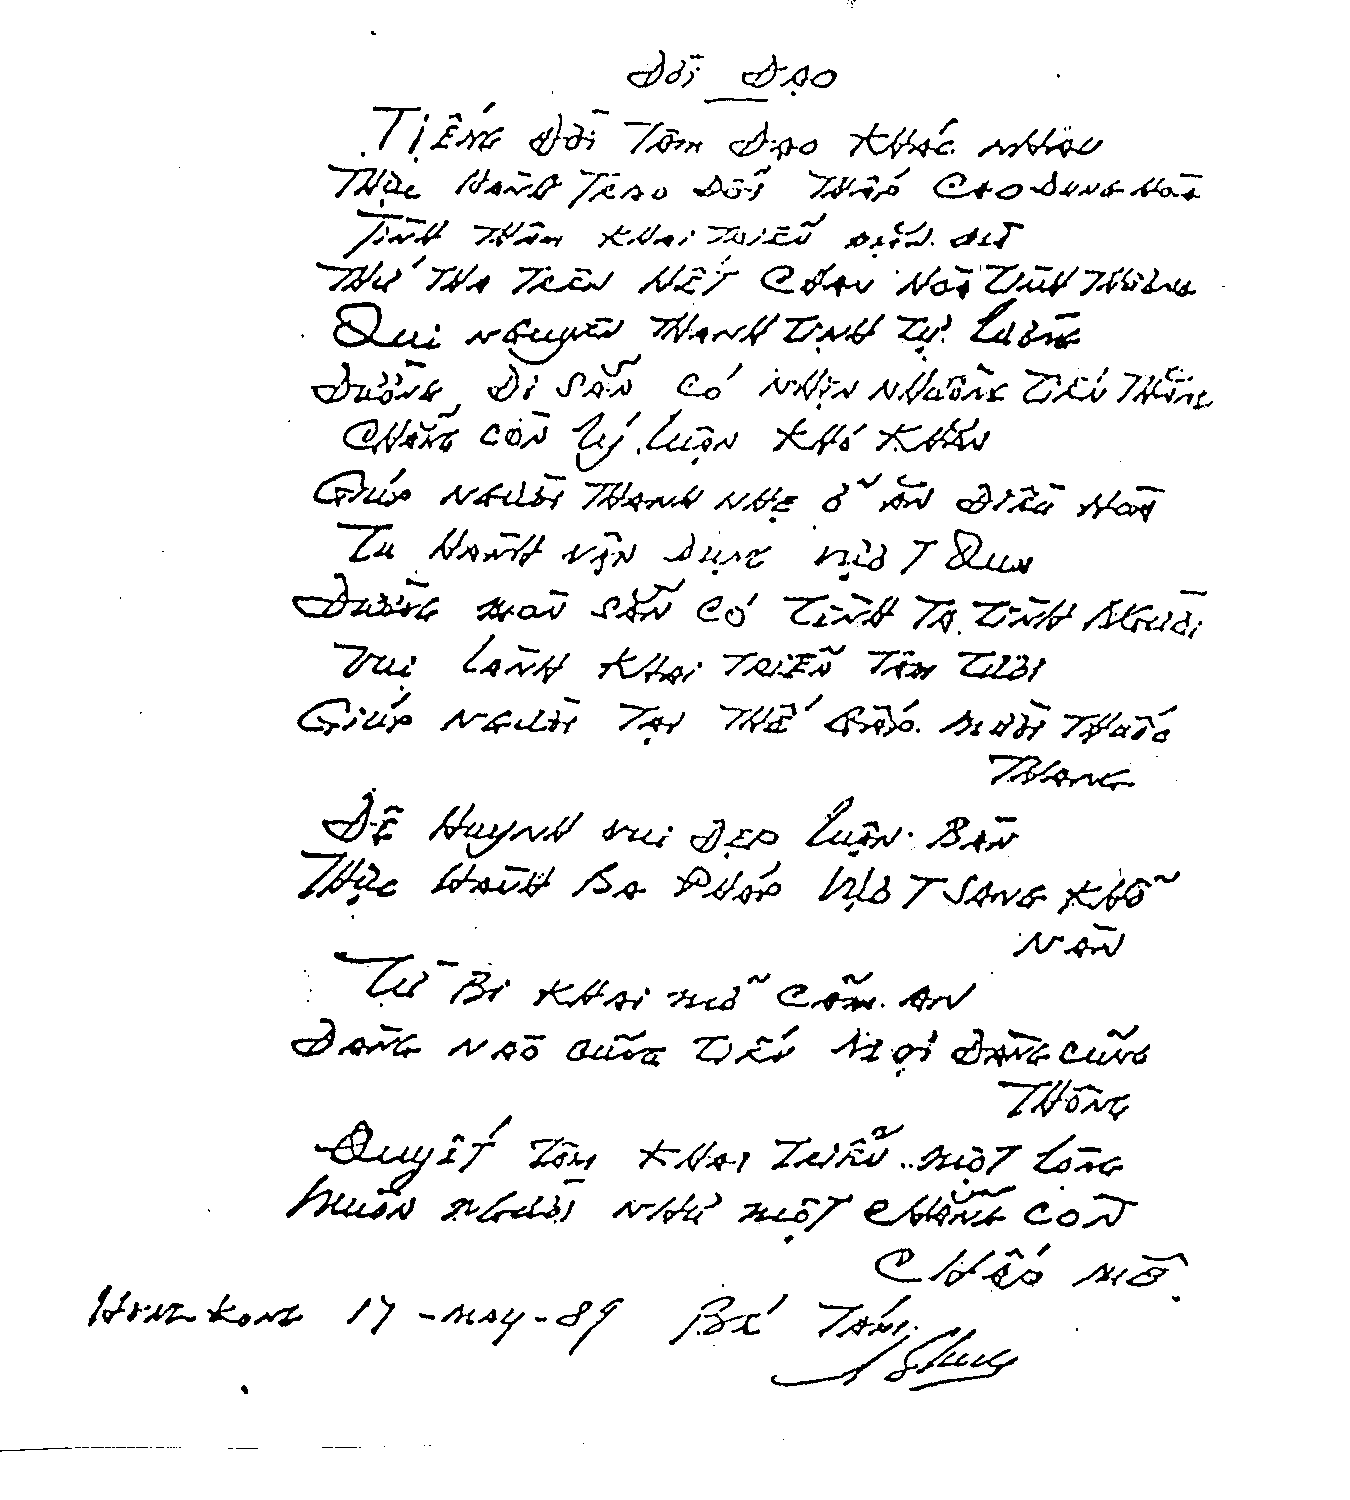 Đời Đạo
Tiếng Đời Tâm Đạo Khác Nhau
Thực Hành Trao Đổi Thấp Cao Dung Hòa
Tình Thâm Khai Triển
Thứ Tha Trên Hết Chan Hòa Tình Thương
Qui Nguyên Thanh Tịnh Tự Lường
Đường Đi Sẵn Có Nhịn Nhường Tiến Thăng
Chẳng Còn Lý Luận Khó Khăn
Giúp Người Thanh Nhẹ Ở Ăn Điều Hòa
Tu Hành Vận Dụng Vượt Qua
Đường Mòn Sẵn Có Tình Ta Tình Người
Vui Lành Khai Triển Tâm Tươi
Giúp Người Tại Thế Gấp Mười Thuốc
Thang
Đệ Huynh Vui Đẹp Luận Bàn
Thực Hành Ba Pháp Vượt Sang Khổ
Nàn
Từ Bi Khai Mở Cảm An
Đàng Nào Cũng Tiến Mọi Đàng Cũng
Thông
Quyết Tâm Khai Triển Một Lòng
Muôn Người Như Một Chẳng Còn
Chấp Mê
Hong Kong 17-May-89 Bé Tám